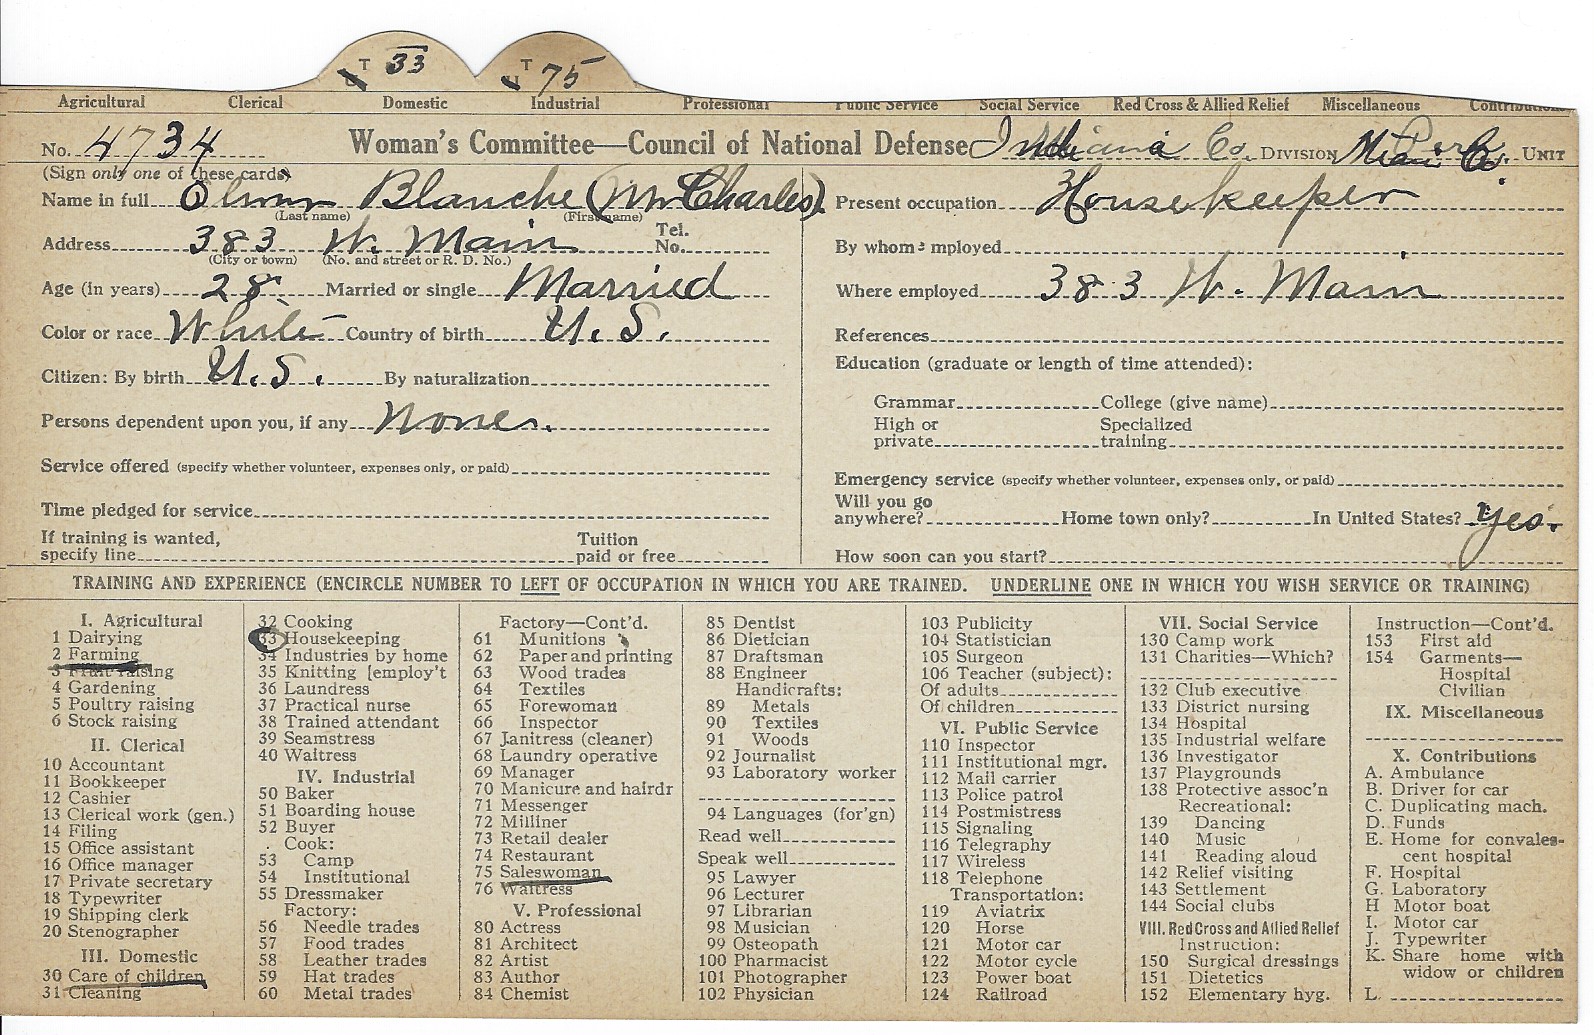 T 33
T 75
Agricultural Clerical Domestic Industrial Professional Public Service Social Service Red Cross & Allied Relief Miscellaneous Contributions
No. 4734 Woman's Committee—Council of National Defense Indiana Co. DIVISION Miami Co. UNIT
(Sign only one of these cards)
Name in full Olmn Blanche (Mrs Charles).
(Last name) (First name)
Address 383 W. Main Tel. No.
(City or town) (No. and street or R. D. No.)
Age (in years) 28 Married or single Married
Color or race White Country of birth U. S.
Citizen: By birth U. S. By naturalization
Persons dependent upon you, if any None.
Service offered (specify whether volunteer, expenses only, or paid)
Time pledged for service
If training is wanted, specify line Tuition paid or free
Present occupation Housekeeper
By whom employed
Where employed 383 W. Main
References
Education (graduate or length of time attended):
Grammar College (give name)
High or private Specialized training
Emergency service (specify whether volunteer, expenses only, or paid)
Will you go anywhere? Home town only? In United States? Yes.
How soon can you start?
TRAINING AND EXPERIENCE (ENCIRCLE NUMBER TO LEFT OF OCCUPATION IN WHICH YOU ARE TRAINED. UNDERLINE ONE IN WHICH YOU WISH SERVICE OR TRAINING)
I. Agricultural
1 Dairying
2 Farming
3 Fruit raising
4 Gardening
5 Poultry raising
6 Stock raising
II. Clerical
10 Accountant
11 Bookkeeper
12 Cashier
13 Clerical work (gen.)
14 Filing
15 Office assistant
16 Office manager
17 Private secretary
18 Typewriter
19 Shipping clerk
20 Stenographer
III. Domestic
30 Care of children
31 Cleaning
32 Cooking
33 Housekeeping
34 Industries by home
35 Knitting [employ't
36 Laundress
37 Practical nurse
38 Trained attendant
39 Seamstress
40 Waitress
IV. Industrial
50 Baker
51 Boarding house
52 Buyer
Cook:
53 Camp
54 Institutional
55 Dressmaker
Factory:
56 Needle trades
57 Food trades
58 Leather trades
59 Hat trades
60 Metal trades
Factory—Cont'd.
61 Munitions
62 Paper and printing
63 Wood trades
64 Textiles
65 Forewoman
66 Inspector
67 Janitress (cleaner)
68 Laundry operative
69 Manager
70 Manicure and hairdr
71 Messenger
72 Milliner
73 Retail dealer
74 Restaurant
75 Saleswoman
76 Waitress
V. Professional
80 Actress
81 Architect
82 Artist
83 Author
84 Chemist
85 Dentist
86 Dietician
87 Draftsman
88 Engineer
Handicrafts:
89 Metals
90 Textiles
91 Woods
92 Journalist
93 Laboratory worker
94 Languages (for'gn)
Read well
Speak well
95 Lawyer
96 Lecturer
97 Librarian
98 Musician
99 Osteopath
100 Pharmacist
101 Photographer
102 Physician
103 Publicity
104 Statistician
105 Surgeon
106 Teacher (subject):
Of adults
Of children
VI. Public Service
110 Inspector
111 Institutional mgr.
112 Mail carrier
113 Police patrol
114 Postmistress
115 Signaling
116 Telegraphy
117 Wireless
118 Telephone
Transportation:
119 Aviatrix
120 Horse
121 Motor car
122 Motor cycle
123 Power boat
124 Railroad
VII. Social Service
130 Camp work
131 Charities—Which?
132 Club executive
133 District nursing
134 Hospital
135 Industrial welfare
136 Investigator
137 Playgrounds
138 Protective assoc'n
Recreational:
139 Dancing
140 Music
141 Reading aloud
142 Relief visiting
143 Settlement
144 Social clubs
VIII. Red Cross and Allied Relief
Instruction:
150 Surgical dressings
151 Dietetics
152 Elementary hyg.
Instruction—Cont'd.
153 First aid
154 Garments—
Hospital
Civilian
IX. Miscellaneous
X. Contributions
A. Ambulance
B. Driver for car
C. Duplicating mach.
D. Funds
E. Home for convales-
cent hospital
F. Hospital
G. Laboratory
H Motor boat
I. Motor car
J. Typewriter
K. Share home with
widow or children
L.